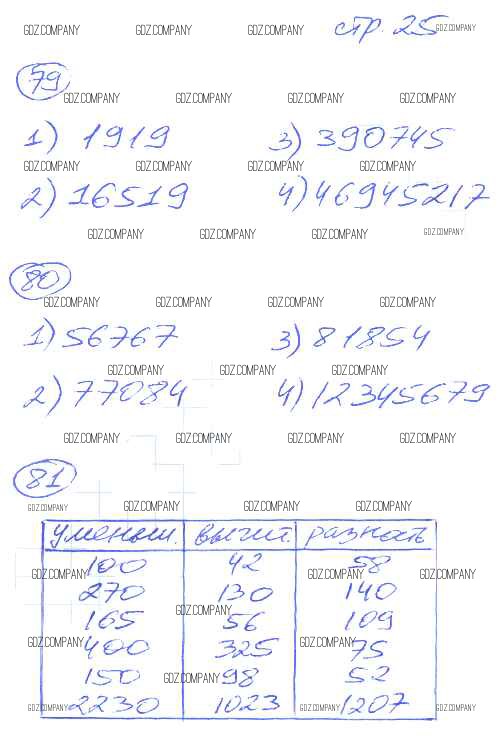 GDZ.COMPANY GDZ.COMPANY GDZ.COMPANY стр. 25 GDZ.COMPANY
79
GDZ.COMPANY GDZ.COMPANY GDZ.COMPANY GDZ.COMPANY
1) 1919 3) 390745
GDZ.COMPANY GDZ.COMPANY GDZ.COMPANY GDZ.COMPANY
2) 16519 4) 46945217
GDZ.COMPANY GDZ.COMPANY GDZ.COMPANY GDZ.COMPANY
80
GDZ.COMPANY GDZ.COMPANY GDZ.COMPANY GDZ.COMPANY
1) 56767 3) 81854
GDZ.COMPANY GDZ.COMPANY GDZ.COMPANY
2) 77084 4) 12345679
GDZ.COMPANY GDZ.COMPANY GDZ.COMPANY GDZ.COMPANY
81
GDZ.COMPANY GDZ.COMPANY GDZ.COMPANY GDZ.COMPANY
уменьш. вычит. разность
100 42 58
GDZ.COMPANY GDZ.COMPANY GDZ.COMPANY
270 130 140
GDZ.COMPANY
165 56 109
GDZ.COMPANY GDZ.COMPANY
400 325 75
150 GDZ.COMPANY 98 52
GDZ.COMPANY 2230 1023 GDZ.COMPANY 1207 GDZ.COMPANY